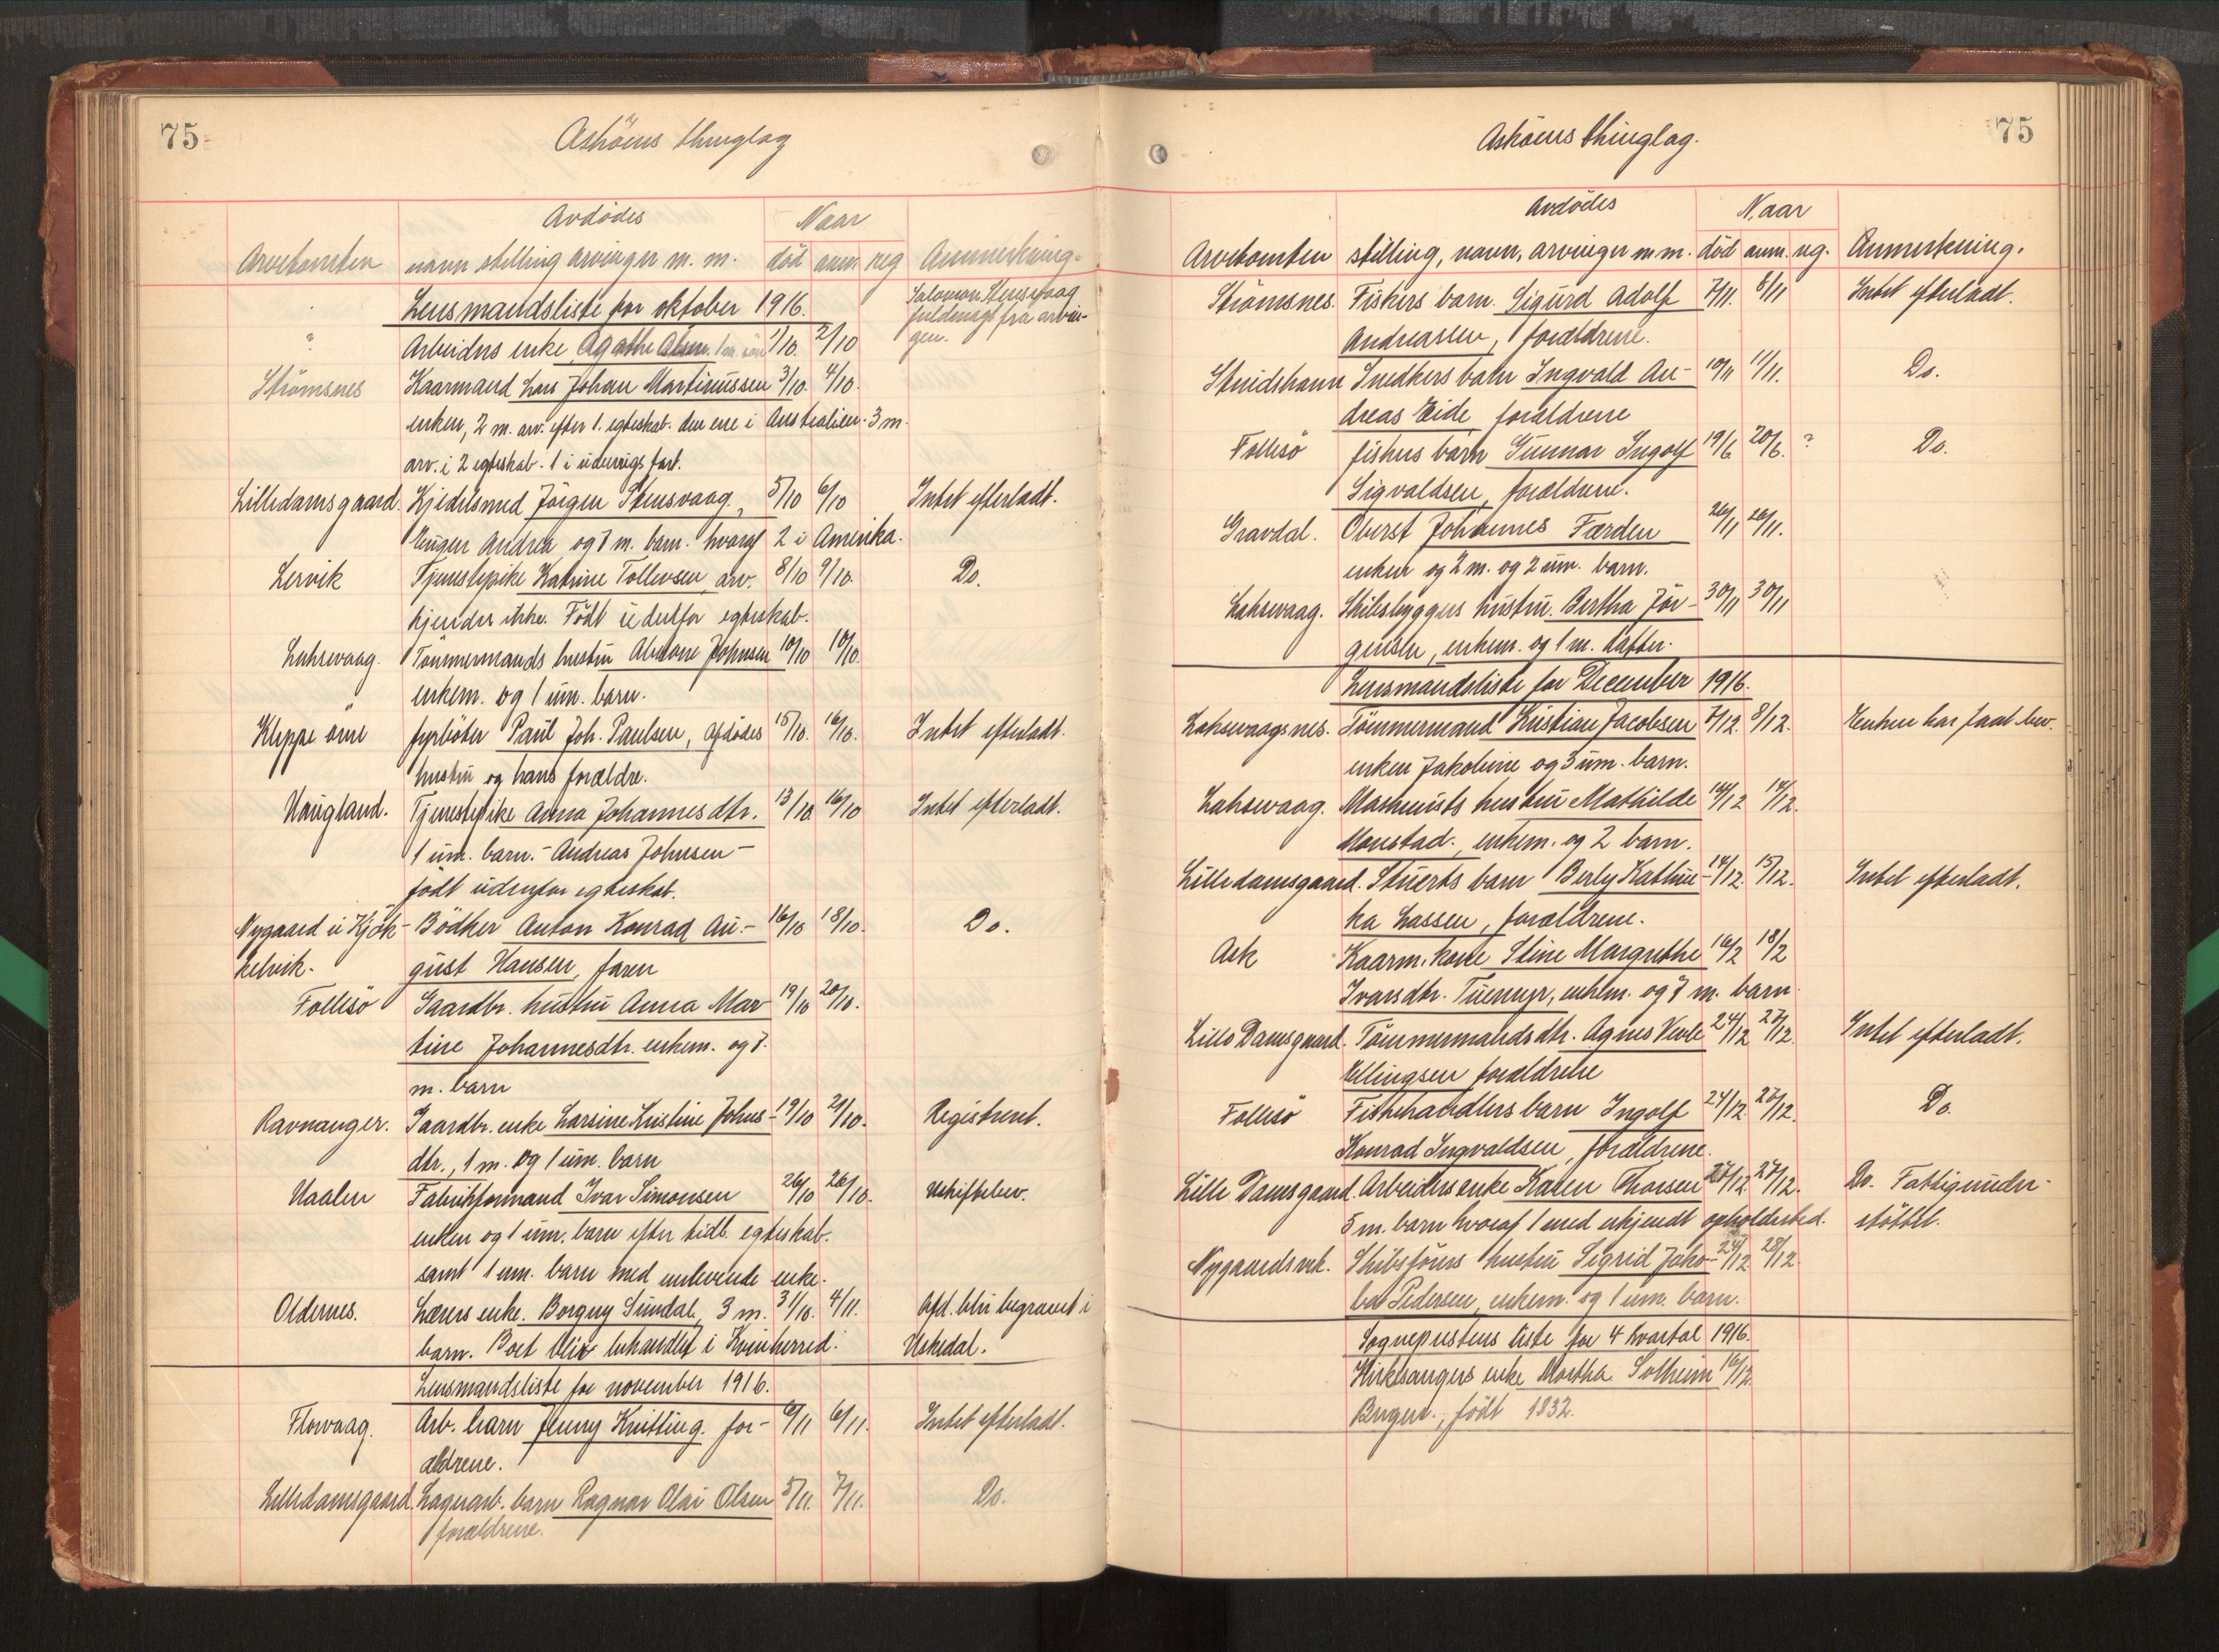 75
Askøens thinglag
Avdödes
Naar
Arvetomten navn stilling arvinger m. m. död anm. reg Anmerkning.
Lensmandsliste for oktober 1916.
Salomon Stensvaag
fuldmagt fra arvin-
gen.
? Arbeiders enke Agathe Olsen. 1 m. sön 1/10. 2/10
Strömsnes Kaarmand Lars Johan Martinussen 3/10. 4/10.
enken, 2 m. arv. efter 1. egteskab. den ene i Australien. 3 m.
arv. i 2 egteskab. 1 i udenrigs fart.
Lilledamsgaard. Kjedelsmed Jörgen Stensvaag. 5/10 6/10 Intet efterladt.
Enken Andrea og 7 m. barn. hvoraf 2 i Amerika.
Lervik Tjenestepike Katrine Tollevsen, arv. 8/10 9/10. Do.
kjendes ikke. Födt udenfor egteskab.
Laksevaag. Tömmermands hustru Abelone Johnsen 10/10 10/10.
enkem. og 1 um. barn.
Kleppe övre fyrböter Paul Joh. Paulsen, afdödes 15/10. 16/10. Intet efterladt.
hustru og hans forældre.
Haugland. Tjenestepike Anna Johannesdtr. 13/10. 16/10 Intet efterladt.
1 um. barn. - Andreas Johnsen -
födt udenfor egteskab.
Nygaard i Kjök- Bödker Anton Konrad Au- 16/10 18/10. Do.
kelvik. gust Hansen, faren
Follesö Gaardbr. hustru Anna Mar- 19/10 20/10.
tine Johannesdtr. enkem. og 7.
m. barn
Ravnanger. Gaardbr. enke Larsine Kristine Johns- 19/10 21/10. Registreret.
dtr., 1 m. og 1 um. barn
Haalen Fabrikformand Ivar Simonsen 26/10 26/10. Uskiftebev.
enken og 1 um. barn efter tidl. egteskab.
samt 1 um. barn med nulevende enke.
Oldernes. Lærers enke. Borgny Sundal, 3 m. 31/10. 4/11. Afd. blir begravet i
barn. Boet blir behandlet i Kvinherred. Uskedal.
Lensmandsliste for november 1916.
Florvaag. Arb. barn Jenny Knitting. for- 6/11 6/11. Intet efterladt.
ældrene.
Lilledamsgaard. Lagerarb. barn Ragnar Olai Olsen 5/11. 7/11. Do.
forældrene.
Askøens thinglag.
75
Avdödes
Naar
Arvetomten stilling, navn, arvinger m m. död anm. reg. Anmerkning.
Strömsnes. Fiskers barn. Sigurd Adolf 7/11. 8/11 Intet efterladt.
Andreassen, forældrene.
Strudshavn Snedkers barn Ingvald An- 10/11 11/11. Do.
dreas Eide, forældrene
Follesö fiskers barn Gunnar Ingolf 19/6 20/6. ? Do.
Sigvaldsen, forældrene.
Gravdal. Oberst Johannes Færden 26/11 26/11.
enken og 2 m. og 2 um. barn.
Laksevaag. Skibsbyggers hustru. Bertha Jör- 30/11 30/11
gensen, enkem. og 1 m. datter.
Lensmandsliste for December 1916.
Laksevaagsnes. Tömmermand Kristian Jacobsen 7/12. 8/12. Enken har faat bev.
enken Jakobine og 3 um. barn.
Laksevaag. Maskinists hustru Mathilde 14/12 14/12.
Monstad., enkem. og 2 barn.
Lilledamsgaard. Stuerts barn Berly Kathin- 14/12. 15/12. Intet efterladt.
ka Lassen, forældrene.
Ask Kaarm. kone Stine Margrethe 16/2 18/2
Ivarsdtr. Tuenyr, enkem. og 7 m. barn.
Lille Damsgaard. Tömmermands dtr. Agnes Vevle 24/12 27/12. Intet efterladt.
Ellingsen forældrene
Follesö Fiskehandlers barn Ingolf 24/12 27/12. Do.
Konrad Ingvaldsen, forældrene.
Lille Damsgaard. Arbeiders enke Karen Thorsen 27/12 27/12. Do. Fattigunder-
5 m. barn hvoraf 1 med ukjendt opholdssted. stöttet.
Nygaardsvik. Skibsförers hustru Sigrid Jako- 24/12 28/12.
ba Pedersen, enkem. og 1 um. barn.
Sogneprestens liste for 4 kvartal 1916.
Kirkesangers enke Martha Solheim 16/12.
Bergen., födt 1832.